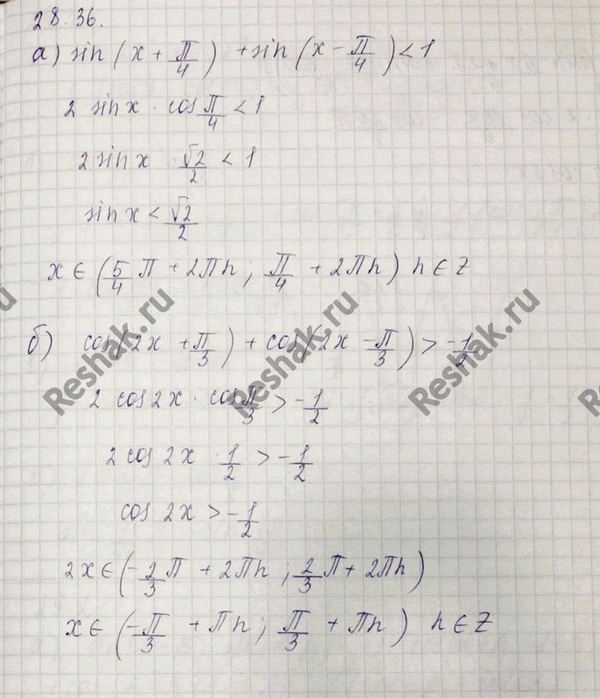 28.36.
а) sin(x + π/4) + sin(x - π/4) < 1
2 sin x · cos π/4 < 1
2 sin x · √2/2 < 1
sin x < √2/2
x ∈ (5/4 π + 2πn; π/4 + 2πn) n ∈ Z
б) cos(2x + π/3) + cos(2x - π/3) > -1/2
2 cos 2x · cos π/3 > -1/2
2 cos 2x · 1/2 > -1/2
cos 2x > -1/2
2x ∈ (-2/3 π + 2πn; 2/3 π + 2πn)
x ∈ (-π/3 + πn; π/3 + πn) n ∈ Z
Reshak.ru
Reshak.ru
Reshak.ru